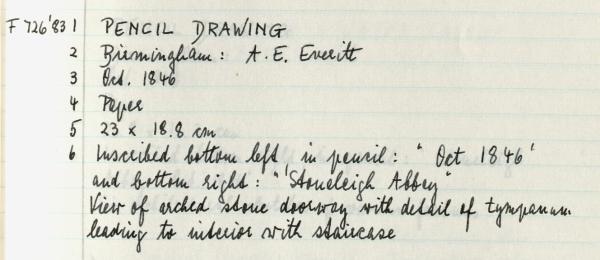 F 726'83 1 PENCIL DRAWING
2 Birmingham: A. E. Everitt
3 Oct. 1846
4 Paper
5 23 x 18.8 cm
6 Inscribed bottom left in pencil: "Oct 1846'
and bottom right: "'Stoneleigh Abbey"
View of arched stone doorway with detail of tympanum
leading to interior with staircase